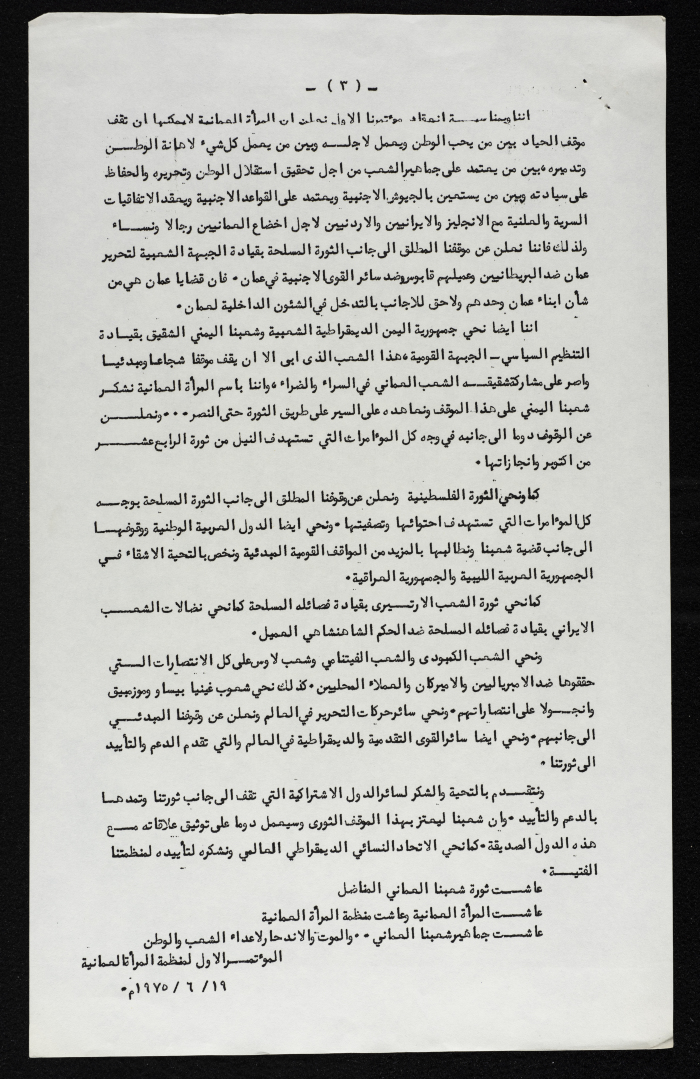 - ( ٣ ) -
اننا وبمناسبة انعقاد مؤتمرنا الاول نعلن ان المرأة العمانية لايمكنها ان تقف
موقف الحياد بين من يحب الوطن ويعمل لاجله وبين من يعمل كل شيء لاهانة الوطن
وتدميره ، بين من يعتمد على جماهير الشعب من اجل تحقيق استقلال الوطن وتحريره والحفاظ
على سيادته وبين من يستعين بالجيوش الاجنبية ويعتمد على القواعد الاجنبية ويعقد الاتفاقيات
السرية والعلنية مع الانجليز والايرانيين والاردنيين لاجل اخضاع العمانيين رجالا ونساء
ولذلك فاننا نعلن عن موقفنا المطلق الى جانب الثورة المسلحة بقيادة الجبهة الشعبية لتحرير
عمان ضد البريطانيين وعميلهم قابوس وضد سائر القوى الاجنبية في عمان . فان قضايا عمان هي من
شأن ابناء عمان وحدهم ولاحق للاجانب بالتدخل في الشئون الداخلية لعمان .
اننا ايضا نحي جمهورية اليمن الديمقراطية الشعبية وشعبنا اليمني الشقيق بقيادة
التنظيم السياسي - الجبهة القومية ، هذا الشعب الذى ابى الا ان يقف موقفا شجاعا ومبدئيا
واصر على مشاركة شقيقه الشعب العماني في السراء والضراء ، واننا باسم المرأة العمانية نشكر
شعبنا اليمني على هذا الموقف ونعاهده على السير على طريق الثورة حتى النصر ... ونعلن
عن الوقوف دوما الى جانبه في وجه كل المؤامرات التي تستهدف النيل من ثورة الرابع عشر
من اكتوبر وانجازاتها .
كما ونحي الثورة الفلسطينية ونعلن عن وقوفنا المطلق الى جانب الثورة المسلحة بوجه
كل المؤامرات التي تستهدف احتوائها وتصفيتها . ونحي ايضا الدول العربية الوطنية ووقوفها
الى جانب قضية شعبنا ونطالبها بالمزيد من المواقف القومية المبدئية ونخص بالتحية الاشقاء في
الجمهورية العربية الليبية والجمهورية العراقية .
كما نحي ثورة الشعب الارتيرى بقيادة فصائله المسلحة كما نحي نضالات الشعب
الايراني بقيادة فصائله المسلحة ضد الحكم الشاهنشاهي العميل .
ونحي الشعب الكمبودى والشعب الفيتنامي وشعب لاوس على كل الانتصارات التي
حققوها ضد الامبرياليين والاميركان والعملاء المحليين . كذلك نحي شعوب غينيا بيساو وموزمبيق
وانجولا على انتصاراتهم . ونحي سائر حركات التحرير في العالم ونعلن عن وقوفنا المبدئي
الى جانبهم . ونحي ايضا سائر القوى التقدمية والديمقراطية في العالم والتي تقدم الدعم والتأييد
الى ثورتنا .
ونتقدم بالتحية والشكر لسائر الدول الاشتراكية التي تقف الى جانب ثورتنا وتمدها
بالدعم والتأييد . وان شعبنا ليعتز بهذا الموقف الثورى وسيعمل دوما على توثيق علاقاته مع
هذه الدول الصديقة . كما نحي الاتحاد النسائي الديمقراطي العالمي ونشكره لتأييده لمنظمتنا
الفتية .
عاشت ثورة شعبنا العماني المناضل
عاشت المرأة العمانية وعاشت منظمة المرأة العمانية
عاشت جماهير شعبنا العماني .. والموت والاندحار لاعداء الشعب والوطن
المؤتمر الاول لمنظمة المرأة العمانية
١٩ / ٦ / ١٩٧٥م .